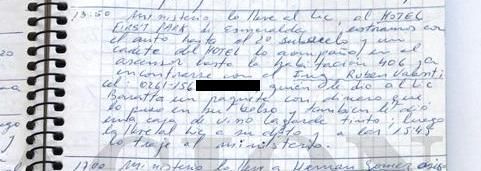 13:50 Ministerio lo lleve al Lic. al HOTEL
FIRST PARK de Esmeralda, entramos con
el auto hasta el 1º subsuelo, un
cadete del HOTEL lo acompañó en el
ascensor hasta la habitación 406, a
encontrarse con el Ing. Ruben Valenti
cel: 0261-156 quien le dio al Lic
Baratta un paquete con dinero que
lo puso en su bolso, también le dio
una caja de vino Lagarde tinto; luego
lo lleve al Lic a su dpto y a las 15:45
lo traje al ministerio.
17:00 Ministerio lo lleve a Hernan Gomez